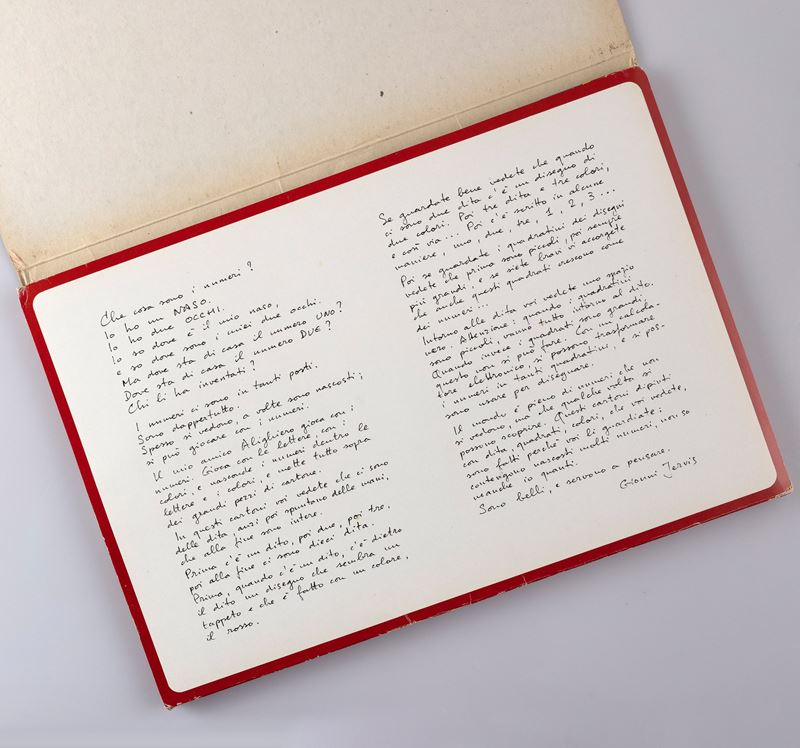 Che cosa sono i numeri?
Io ho un NASO.
Io ho due OCCHI.
Io so dove è il mio naso,
e so dove sono i miei due occhi.
Ma dove sta di casa il numero UNO?
Dove sta di casa il numero DUE?
Chi li ha inventati?
I numeri ci sono in tanti posti.
Sono dappertutto.
Spesso si vedono, a volte sono nascosti;
si può giocare con i numeri.
Il mio amico Alighiero gioca con i
numeri. Gioca con le lettere, con i
colori, e nasconde i numeri dentro le
lettere e i colori, e mette tutto sopra
dei grandi pezzi di cartone.
In questi cartoni voi vedete che ci sono
delle dita, anzi poi spuntano delle mani,
che alla fine sono intere.
Prima c'è un dito, poi due, poi tre,
poi alla fine ci sono dieci dita.
Prima, quando c'è un dito, c'è dietro
il dito un disegno che sembra un
tappeto e che è fatto con un colore,
il rosso.
Se guardate bene vedete che quando
ci sono due dita c'è un disegno di
due colori. Poi tre dita e tre colori,
e così via... Poi c'è scritto in alcune
maniere, uno, due, tre, 1, 2, 3...
Poi se guardate i quadratini dei disegni
vedete che prima sono piccoli, poi sempre
più grandi, e se siete bravi vi accorgete
che anche questi quadrati crescono come
dei numeri...
Intorno alle dita voi vedete uno spazio
nero. Attenzione: quando i quadratini
sono piccoli, vanno tutto intorno al dito.
Quando invece i quadrati sono grandi,
questo non si può fare. Con un calcola-
tore elettronico, si possono trasformare
i numeri in tanti quadratini, e si pos-
sono usare per disegnare.
Il mondo è pieno di numeri che non
si vedono, ma che qualche volta si
possono scoprire. Questi cartoni dipinti
con dita, quadrati, colori, che voi vedete,
sono fatti perché voi li guardiate:
contengono nascosti molti numeri, non so
neanche io quanti.
Sono belli, e servono a pensare.
Gianni Jervis